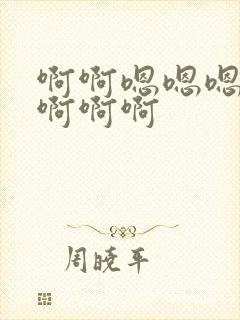 啊啊嗯嗯嗯
啊啊啊
周晓平